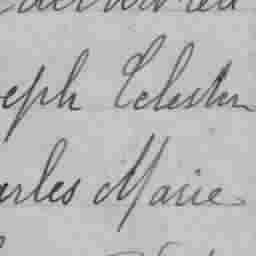 eph Celestin
arles Marie